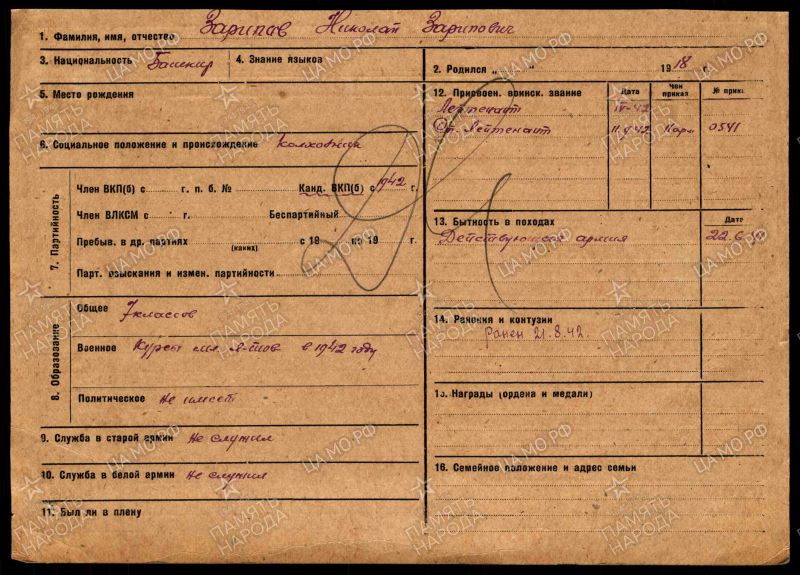 1. Фамилия, имя, отчество Зарипов Николай Зарипович
3. Национальность Башкир
4. Знание языков
5. Место рождения
6. Социальное положение и происхождение колхозник
7. Партийность
Член ВКП(б) с г. п. б. № Канд. ВКП(б) с 1942 г.
Член ВЛКСМ с г. Беспартийный
Пребыв. в др. партиях (каких) с 19 по 19 г.
Парт. взыскания и измен. партийности
8. Образование
Общее 7 классов
Военное Курсы мл. л-тов в 1942 году
Политическое Не имеет
9. Служба в старой армии Не служил
10. Служба в белой армии Не служил
11. Был ли в плену
2. Родился „ “ 1918 г.
12. Присвоен. воинск. звание Дата Чей приказ № прик.
Лейтенант IV-42
Ст. Лейтенант 0541
13. Бытность в походах Дата
Действующая армия 22.6
14. Ранения и контузии
Ранен 21.8.42.
15. Награды (ордена и медали)
16. Семейное положение и адрес семьи
ПАМЯТЬ НАРОДА
ЦАМО.РФ